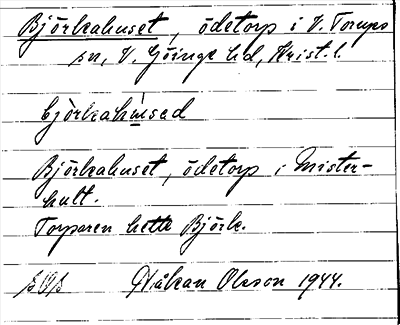 Björkahuset, ödetorp i V. Torups
sn, V. Göinge hd, Krist. l.
Björkahuset, ödetorp i Mister-
hult.
Torparen hette Björk.
Håkan Olsson 1944.